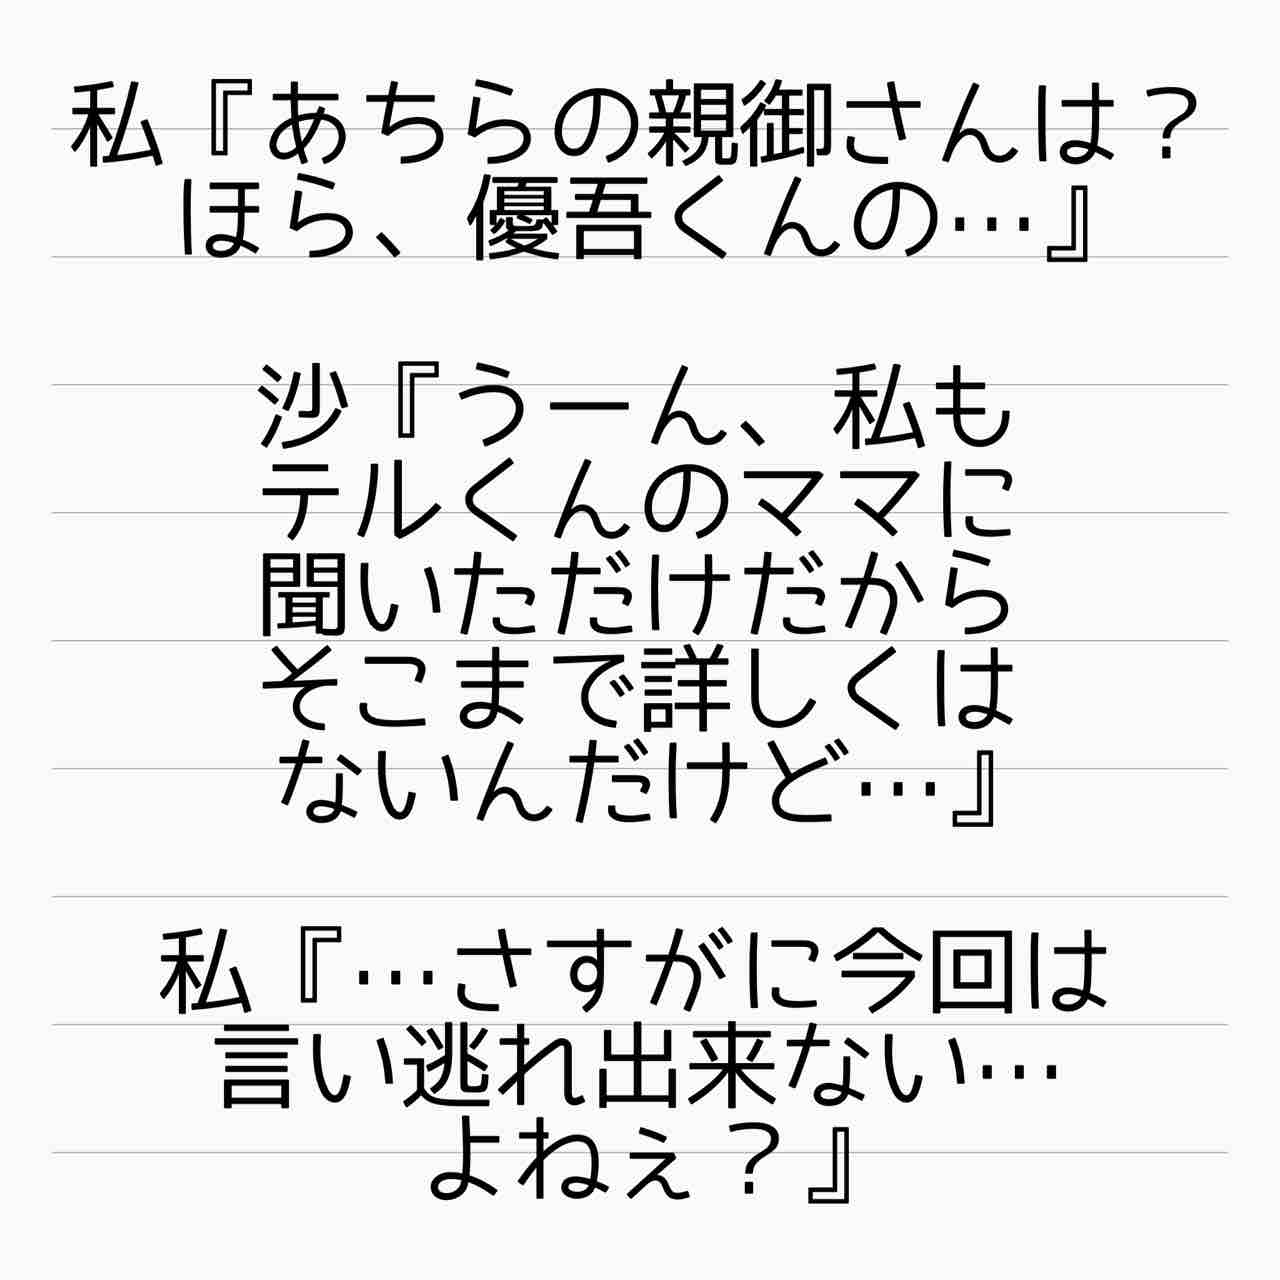 私『あちらの親御さんは？
ほら、優吾くんの…』
沙『うーん、私も
テルくんのママに
聞いただけだから
そこまで詳しくは
ないんだけど…』
私『…さすがに今回は
言い逃れ出来ない…
よねぇ？』